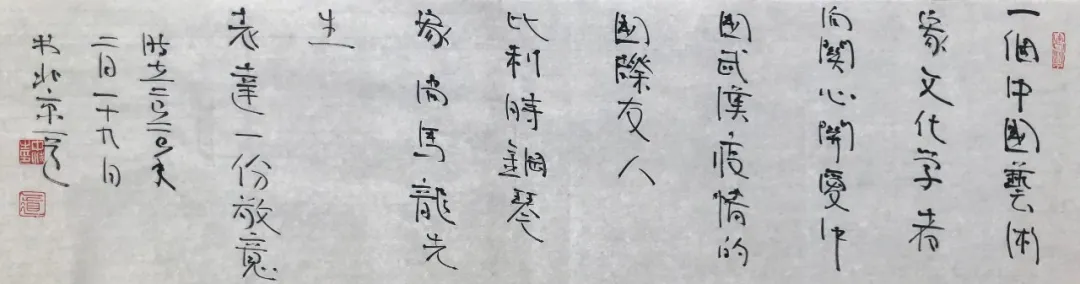 一個中國藝術
家文化学者
向關心關愛中
國武漢疫情的
國際友人
比利時鋼琴
家尚馬龍先
生
表達一份敬意
時在二〇二〇年
二月十九日
北京